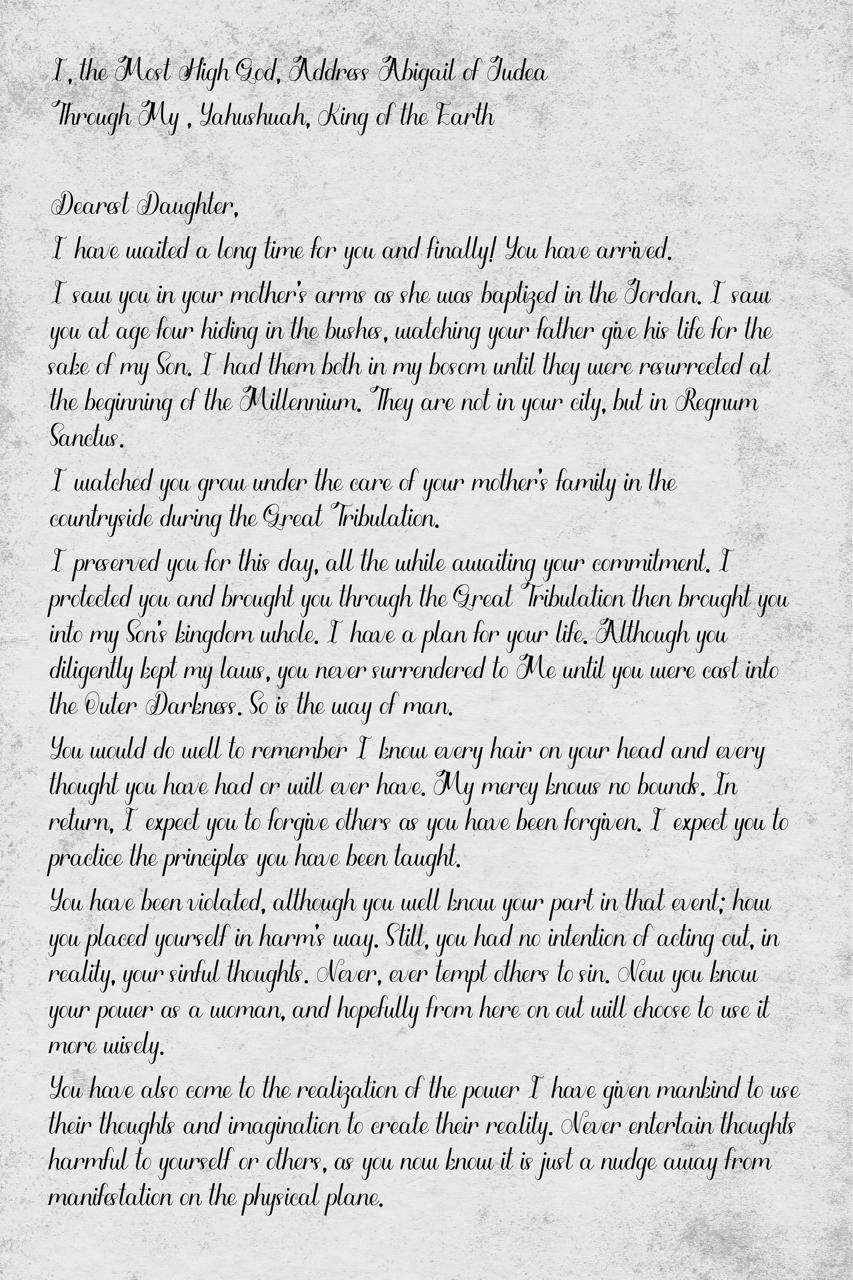 I, the Most High God, Address Abigail of Judea
Through My , Yahushuah, King of the Earth
Dearest Daughter,
I have waited a long time for you and finally! You have arrived.
I saw you in your mother's arms as she was baptized in the Jordan. I saw
you at age four hiding in the bushes, watching your father give his life for the
sake of my Son. I had them both in my bosom until they were resurrected at
the beginning of the Millennium. They are not in your city, but in Regnum
Sanctus.
I watched you grow under the care of your mother's family in the
countryside during the Great Tribulation.
I preserved you for this day, all the while awaiting your commitment. I
protected you and brought you through the Great Tribulation then brought you
into my Son's kingdom whole. I have a plan for your life. Although you
diligently kept my laws, you never surrendered to Me until you were cast into
the Outer Darkness. So is the way of man.
You would do well to remember I know every hair on your head and every
thought you have had or will ever have. My mercy knows no bounds. In
return, I expect you to forgive others as you have been forgiven. I expect you to
practice the principles you have been taught.
You have been violated, although you well know your part in that event; how
you placed yourself in harm's way. Still, you had no intention of acting out, in
reality, your sinful thoughts. Never, ever tempt others to sin. Now you know
your power as a woman, and hopefully from here on out will choose to use it
more wisely.
You have also come to the realization of the power I have given mankind to use
their thoughts and imagination to create their reality. Never entertain thoughts
harmful to yourself or others, as you now know it is just a nudge away from
manifestation on the physical plane.